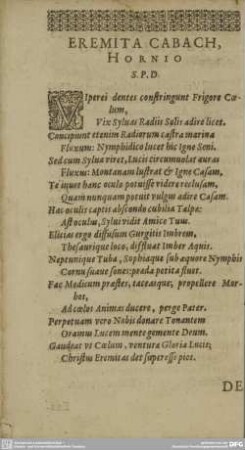 EREMITA CABACH,
HORNIO
S. P. D.
VIperei dentes constringunt Frigore Cœ-
lum,
Vix Syluas Radiis Solis adire licet.
Concipiunt etenim Radiorum castra marina
Fluxum: Nymphidico lucet hic Igne Seni.
Sed cum Sylua viret, Lucis circumuolat auras
Fluxum: Montanam lustrat & Igne Casam,
Te iuuet hanc oculo potuisse videre reclusam,
Quam nunquam potuit vulgus adire Casam.
Hac oculis captis abscondo cubilia Talpæ:
Ast oculus, Sylut vidit Amice Tuus.
Elicias ergo diffusum Gurgitis Imbrem,
Thesaurique loco, diffluat Imber Aquis.
Neptunique Tuba, Suphiaque sub æquore Nymphis
Cornu suaue sones: præda petita fluet.
Fac Medicum præstes, tacteaique, propellere Mor-
bos,
Ad cœlos Animas ducere, perge Pater.
Perpetuam vero Nobis donare Tonantem
Oramus Lucem mente gemente Deum.
Gaudeat vt Cœlum, ventura Gloria Lucis,
Christus Eremitas det superesse pios.
DE